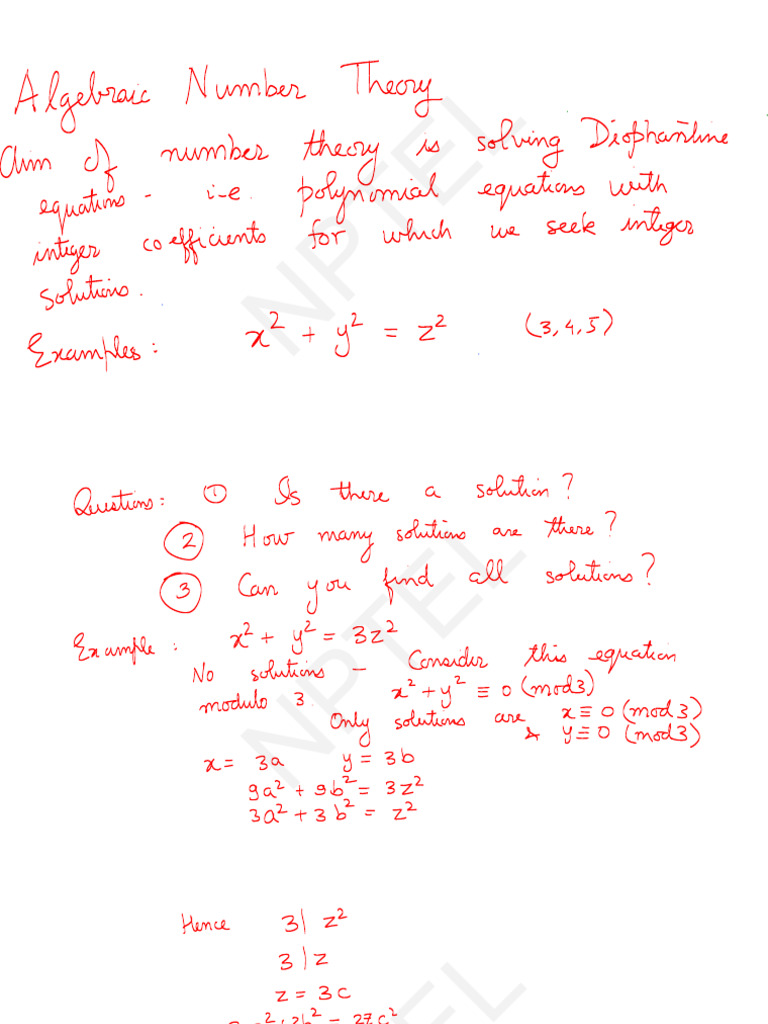 Algebraic Number Theory
Aim of number theory is solving Diophantine
equations - i-e. polynomial equations with
integer coefficients for which we seek integer
solutions.
Examples: x² + y² = z² (3,4,5)
Questions: ① Is there a solution?
② How many solutions are there?
③ Can you find all solutions?
Example: x² + y² = 3z²
No solutions - Consider this equation
modulo 3. x² + y² ≡ 0 (mod 3)
Only solutions are x ≡ 0 (mod 3)
& y ≡ 0 (mod 3)
x = 3a y = 3b
9a² + 9b² = 3z²
3a² + 3b² = z²
Hence 3| z²
3|z
z = 3c
NPTEL
NPTEL
NPTEL